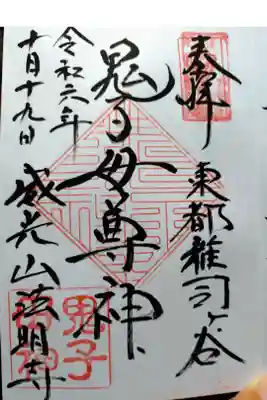 奉拝
東都雑司ヶ谷
鬼子母尊神
令和六年
十月十九日
威光山法明寺
鬼子母神